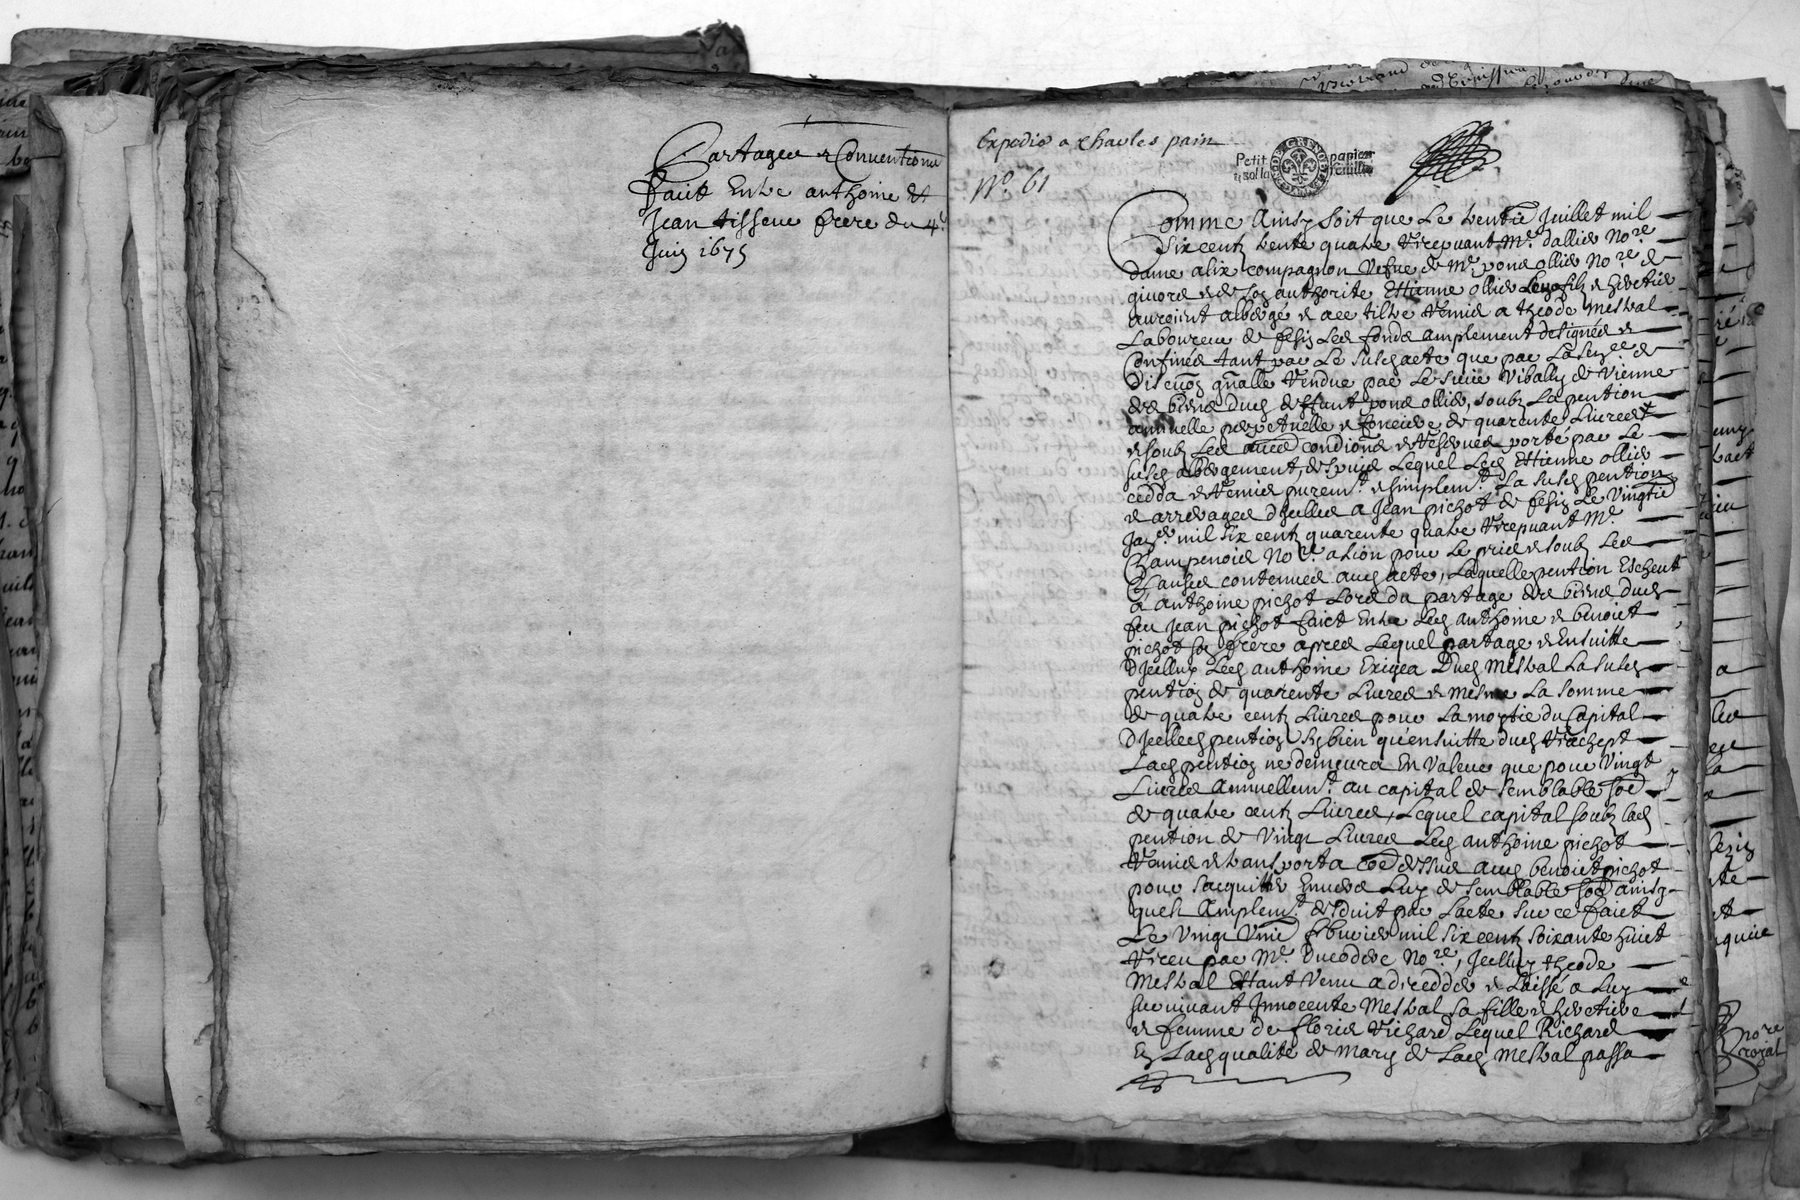 Partages & Conventions
faict Entre anthoine Et
Jean tisseur frere du 4e
Juin 1675
Expedié a Charles pain
No. 61
Petit papier
1 sol la feuille
DE GRENOBLE
Comme Ainsy soit que Le trentie Juillet mil
six centz trente quatre recepvant Me dallier Nore
dame alix compagnon vefue de Me pons ollier Nore de
giuors & de son authorite Ettienne ollier son filz & heretier
auroient albergé & a ce tiltre remis a theode Mestral
Laboureur de fesin Les fondz amplement designés &
Confinés tant par Le susd acte que par La
gnalle rendue par Le sieur Vibally de vienne
des biens dud deffunt pons ollier, soubz La pention
annuelle perpetuelle & fonciere de quarente Liures
& soubz Les aues condions & reserues porté par Le
susd albergement, despuis Lequel Led Ettienne ollier
cedda & remis puremt & simplemt La susd pention
& arrerages d'Icelle a Jean pichot de fesin Le Vingtie
mil six centz quarente quatre recepvant Me
Champenois Nore a Lion pour Le pris & soubz Les
Clauses contenues aud acte, Laquelle pention Escheut
a anthoine pichot Lors du partage des biens dud
feu Jean pichot faict Entre Led anthoine & benoict
pichot son frere apres Lequel partage & Ensuitte
d'Icelluy Led anthoine Exigea Dud Mestral La susd
pention de quarente Liures & Mesme La somme
de quatre centz Liures pour La moytie du Capital
d'Icelle pention sy bien qu'ensuitte dud rachept
Lad pention ne demeura En valeur que pour Vingt
Liures Annuellemt au capital de semblable soe
de quatre centz Liures, Lequel capital soubz lad
pention de Vingt Liures Led anthoine pichot
remis & transporta coe dessus aud benoict pichot
pour sacquitter Enuers Luy de semblable soe ainsy
quest Amplemt desduit par Lacte sur ce faict
Le Vingt Vnie feburier mil six centz soixante huict
receu par Me Ducoderc Nore, Icelluy theode
Mestral Ettant Venu a decedder & Laissé a Luy
suruiuant Innocente Mestral sa fille & heretiere
& femme de floris richard Lequel Richard
En Lad qualité de Mary de Lad Mestral passa
nore
royal